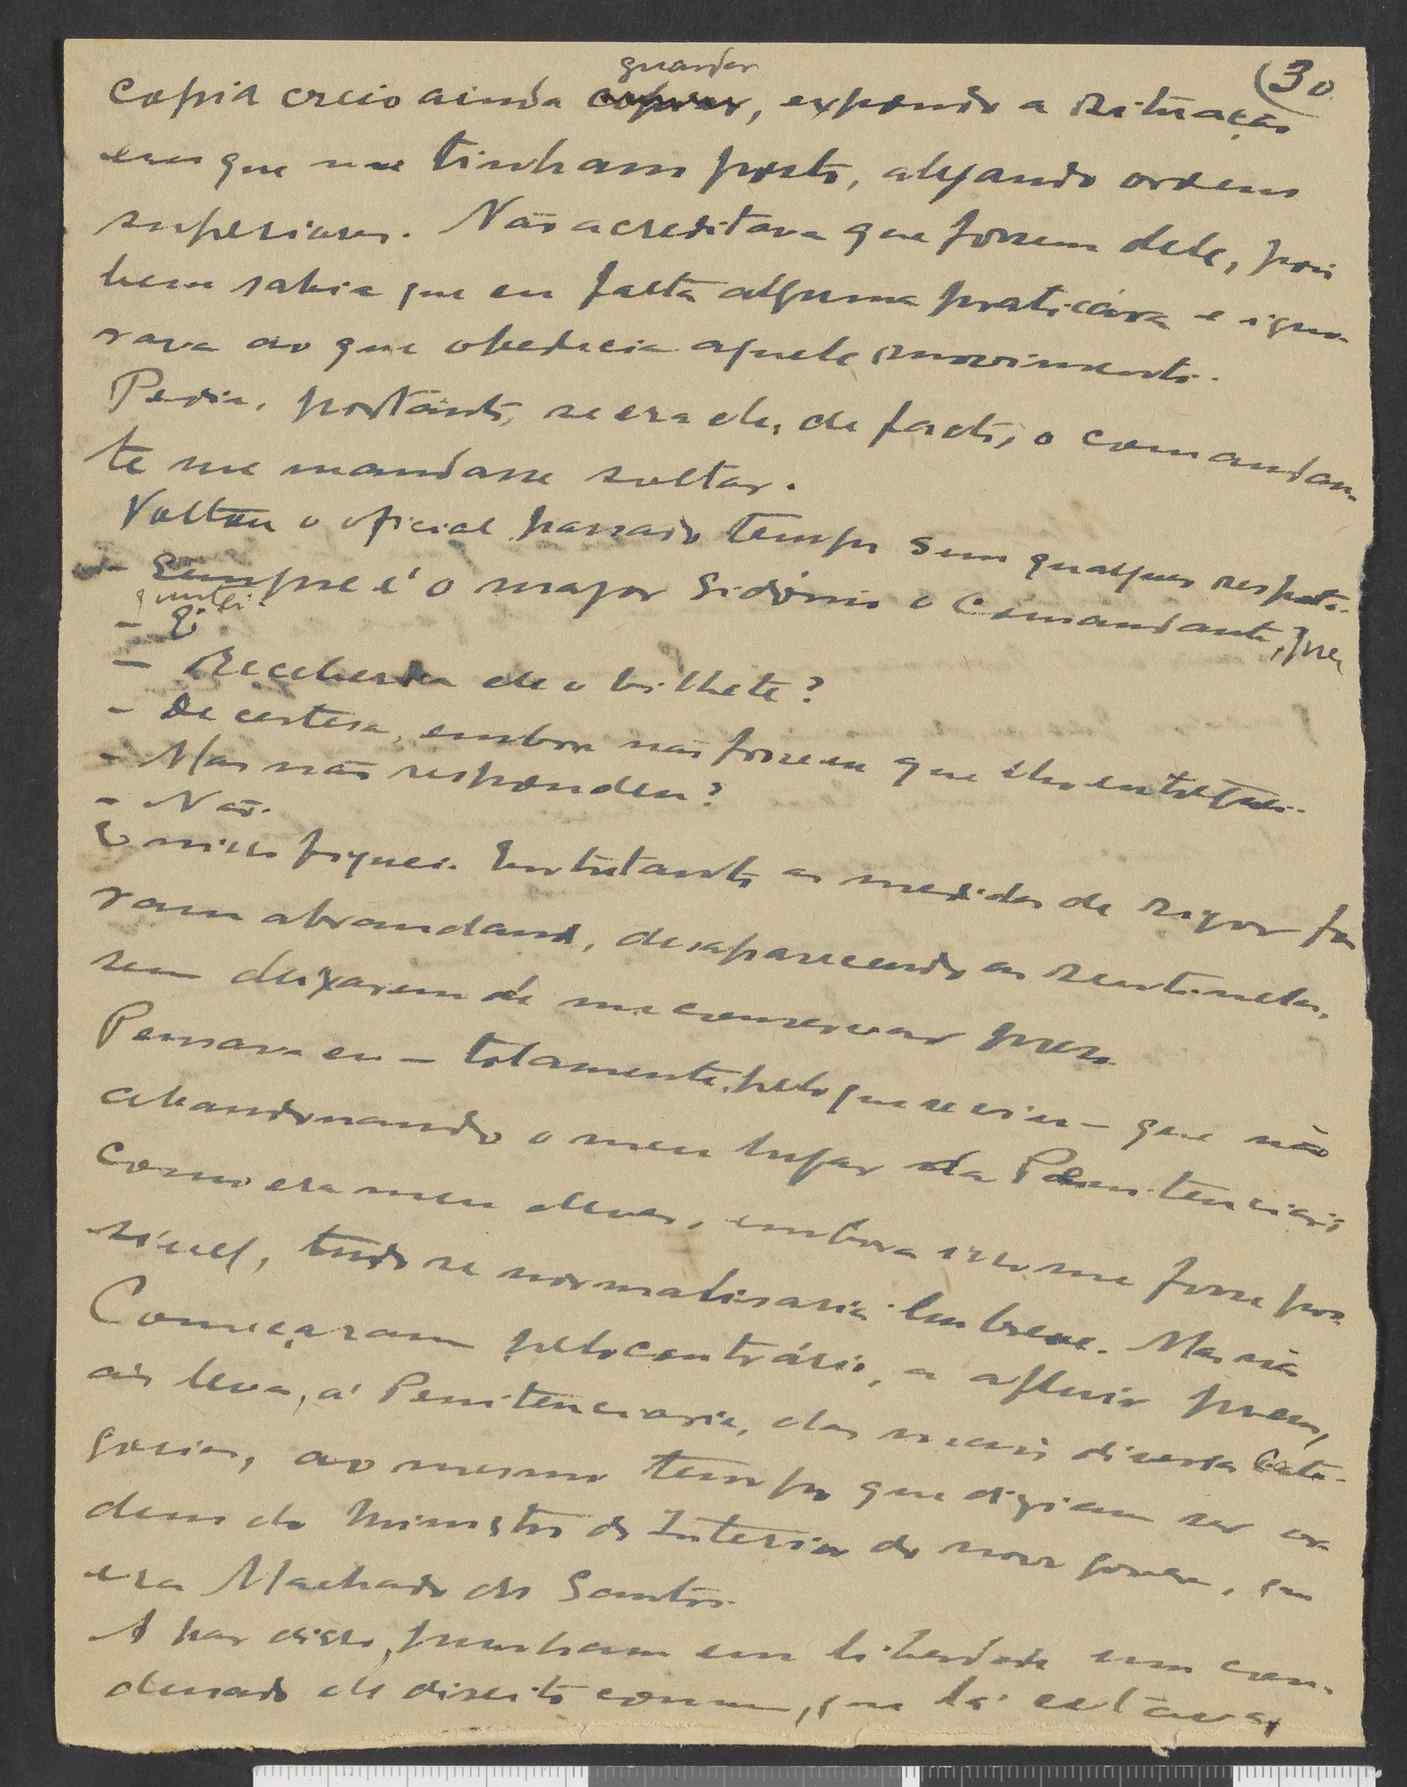 (30
guardar
copia creio ainda copiar, expondo a situação
em que me tinham posto, alegando ordens
superiores. Não acreditava que fossem dele, pois
bem sabia que eu falta alguma praticára e igno-
rava ao que obedecia aquele movimento.
Pedia, portanto, se era ele, de facto, o comandan-
te me mandasse soltar.
Voltou o oficial passado tempo sem qualquer resposta.
- Sempre é o major Sidónio o Comandante, per
guntei.
- É
- Receberia ele o bilhete?
- De certesa, embora não fosse eu que lho entregue.
- Mas não respondeu?
- Não.
E nisso fiquei. Entretanto as medidas de rigor fo
ram abrandando, desaparecendo as sentinelas,
sem deixarem de me conservar preso.
Pensava eu - tolamente, pelo que se viu - que não
abandonando o meu lugar da Penitenciaria
como era meu dever, embora isso me fosse pos-
sível, tudo se normalisaria em breve. Mas não
Começaram pelo contrário, a afluir presos,
aos leva, á Penitenciaria, das mais diversas cate-
gorias, ao mesmo tempo que diziam ser or
dem do Ministro do Interior do novo governo, que
era Machado dos Santos.
A par disso, punham em liberdade um con-
denado de direito comum, que lá estava,